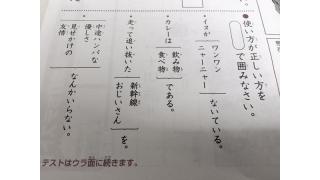 ●使い方が正しい方を
　で囲みなさい。
・イヌが
ワンワン
ニャーニャー
ないている。
・カレーは
飲み物
食べ物
である。
・走って追い抜いた
新幹線
おじいさん
を。
中途ハンパな
優しさ
見せかけの
友情
なんかいらない。
テストはウラ面に続きます。